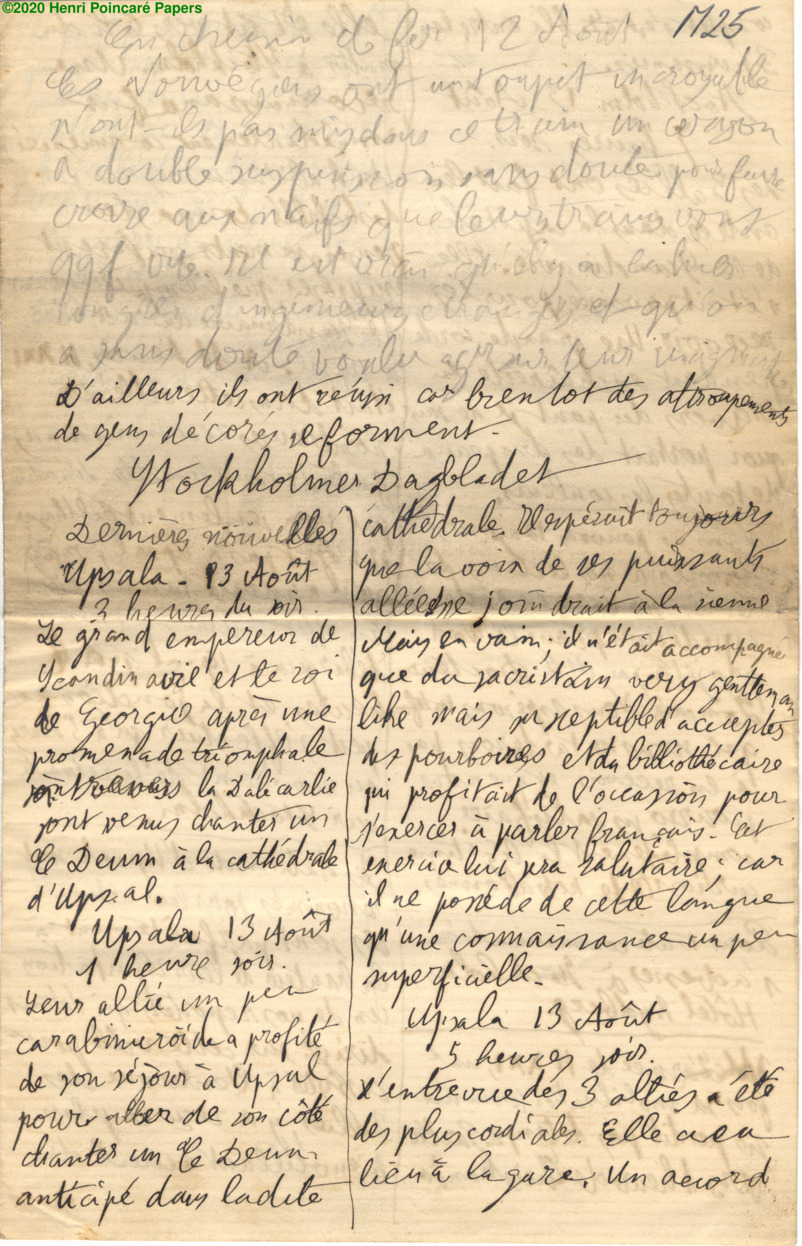 ©2020 Henri Poincaré Papers
1725
En chemin de fer 12 Août
Les Norvégiens ont un toupet incroyable
N'ont-ils pas mis dans ce train un wagon
à double suspension sans doute pour faire
croire aux naïfs que leurs trains vont
qqf vite. Il est vrai qu'il y a
congrès d'ingénieurs étrangers et qu'on
a sans doute voulu agir sur leur
D'ailleurs ils ont réussi car bientot des attroupements
de gens décorés se forment.
Stockholmer Dagbladet
Dernières nouvelles
Upsala - 13 Août
3 heures du soir.
Le grand empereur de
Scandinavie et le roi
de Georgie après une
promenade triomphale
à travers la Dalécarlie
sont venus chanter un
Te Deum à la cathédrale
d'Upsal.
Upsala 13 Août
1 heure soir.
Leur allié un peu
carabinieroïde a profité
de son séjour à Upsal
pour aller de son côté
chanter un Te Deum
anticipé dans ladite
cathédrale. Il espérait toujours
que la voix de ses puissants
alliés se joindrait à la sienne
Mais en vain; il n'était accompagné
que du sacristain very gentleman
like mais susceptible d'accepter
des pourboires et du bibliothécaire
qui profitait de l'occasion pour
s'exercer à parler français. Cet
exercice lui sera salutaire; car
il ne possède de cette langue
qu'une connaissance un peu
superficielle.
Upsala 13 Août
5 heures soir.
L'entrevue des 3 alliés a été
des plus cordiales. Elle a eu
lieu à la gare. Un accord